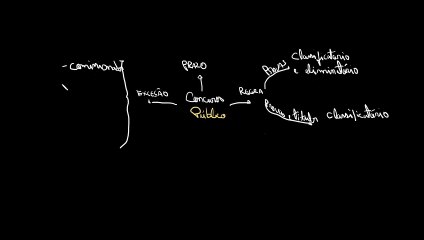 Classificatório
PRAZO
e eliminatório
Provas
EXCEÇÃO
REGRA
Concurso
Público
Provas e títulos
Classificatório